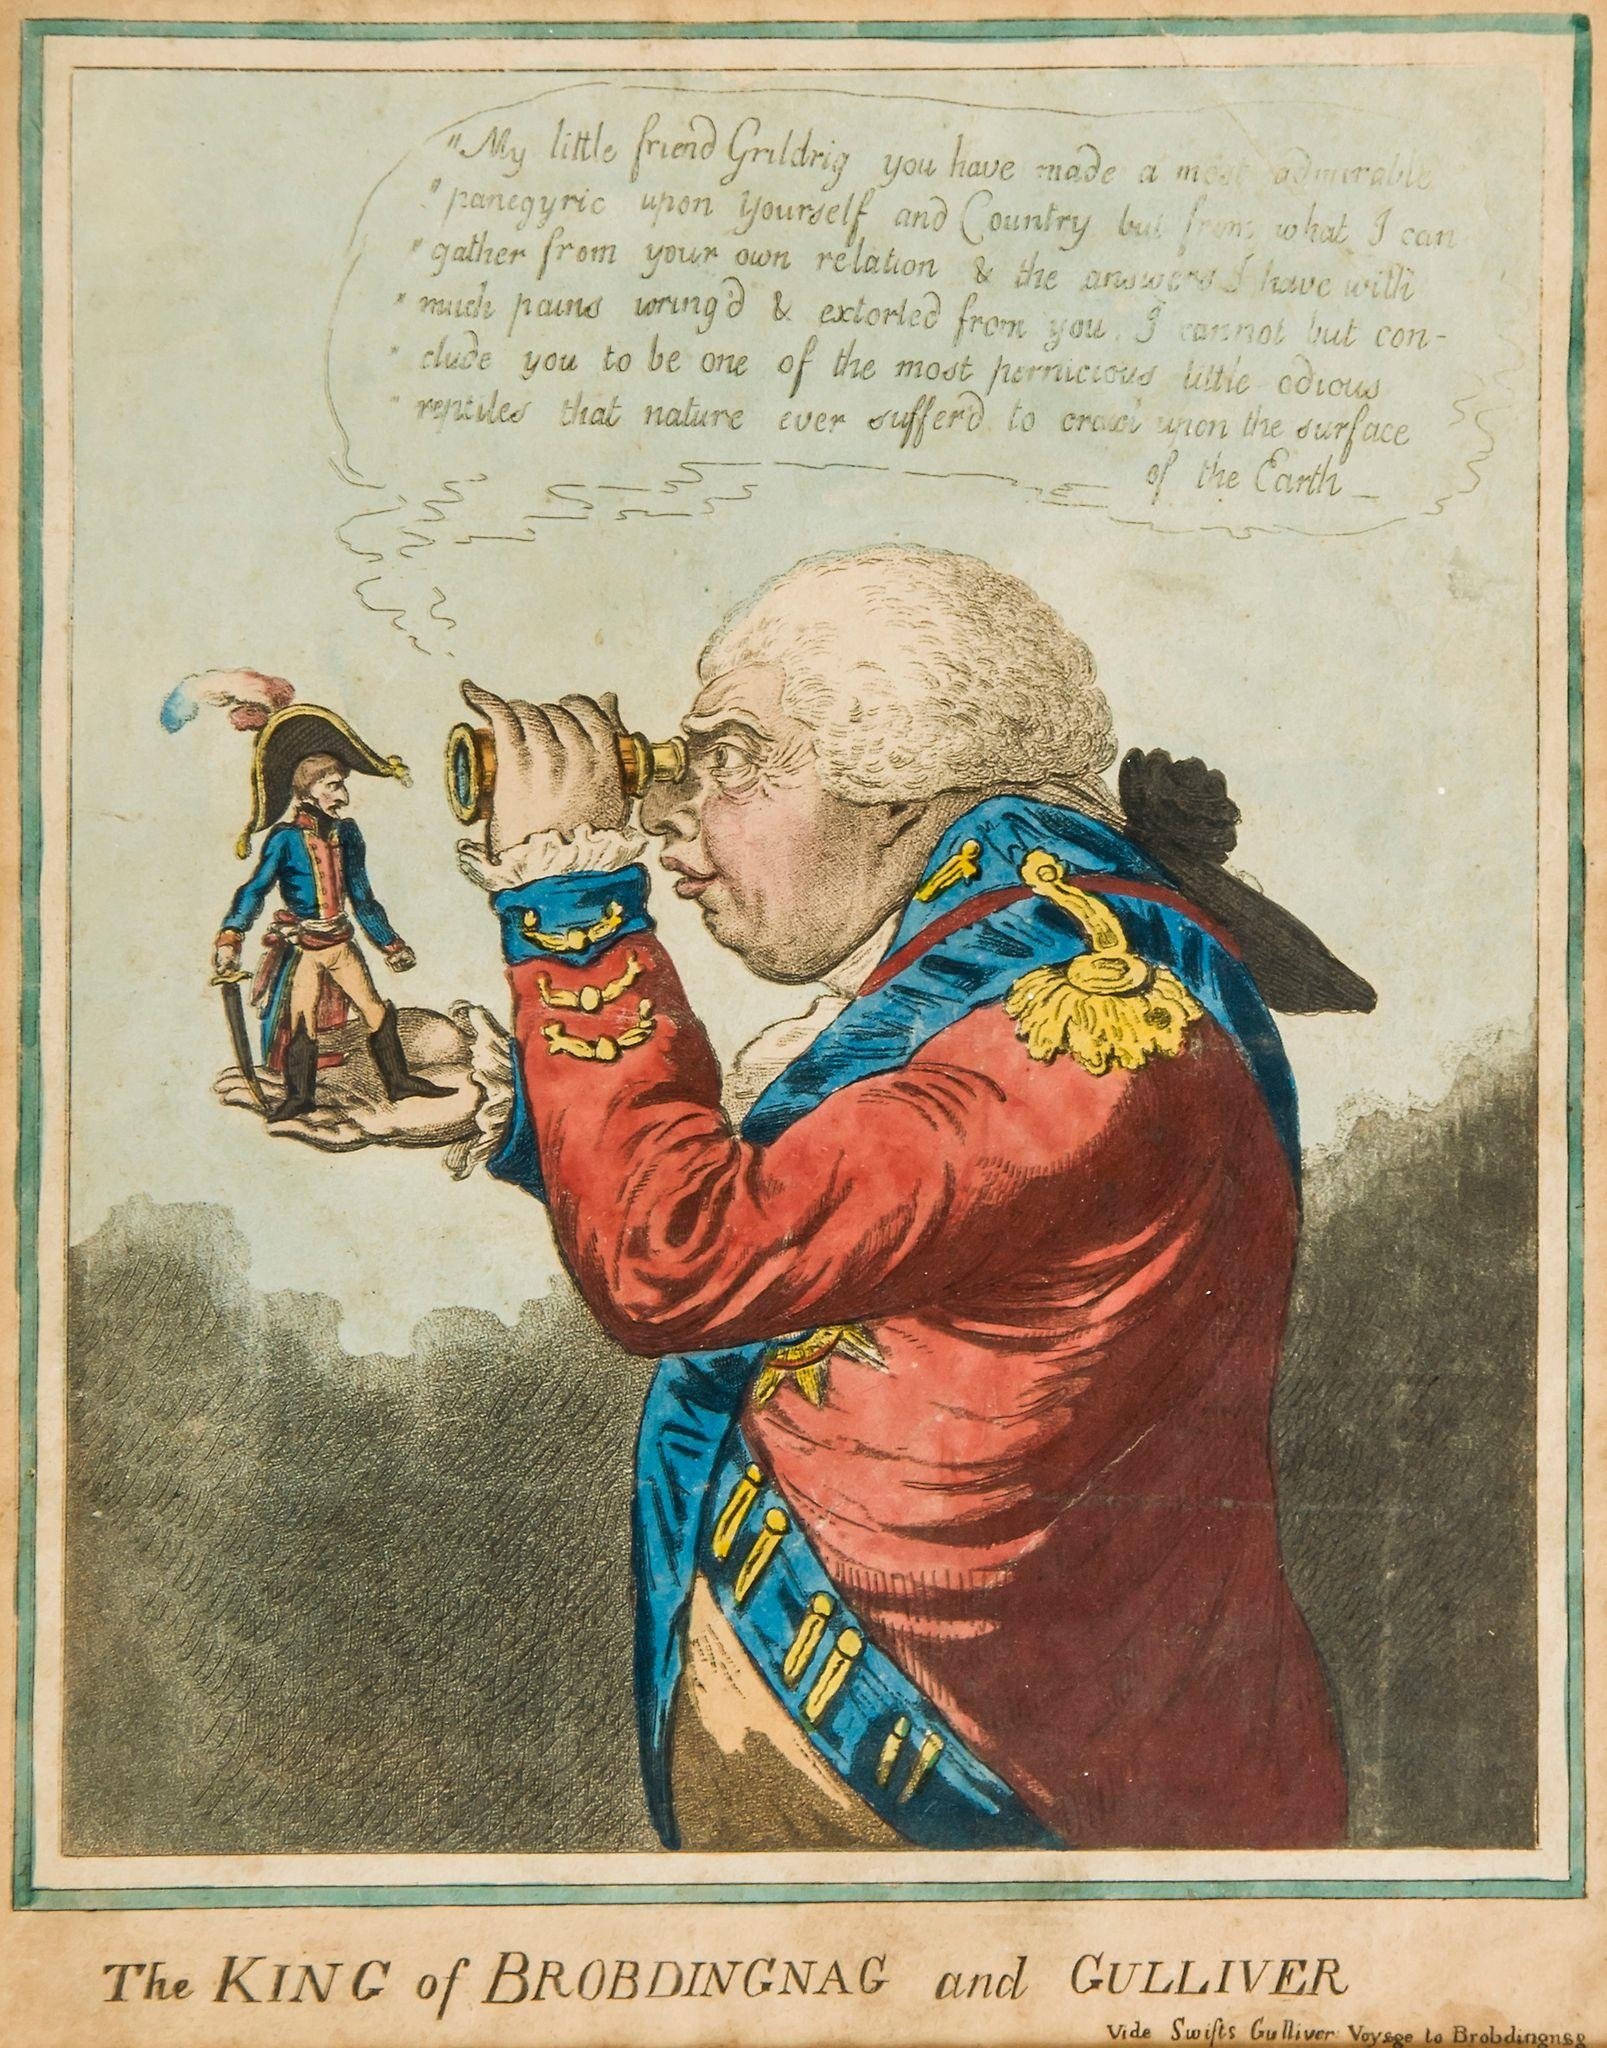 "My little friend Grildrig you have made a most admirable
"panegyric upon Yourself and Country but from what I can
"gather from your own relation & the answers I have with
"much pains wring'd & extorted from you, I cannot but con-
"clude you to be one of the most pernicious little odious
"reptiles that nature ever suffer'd to crawl upon the surface
of the Earth_
The KING of BROBDINGNAG and GULLIVER
Vide Swifts Gulliver: Voyage to Brobdingnag